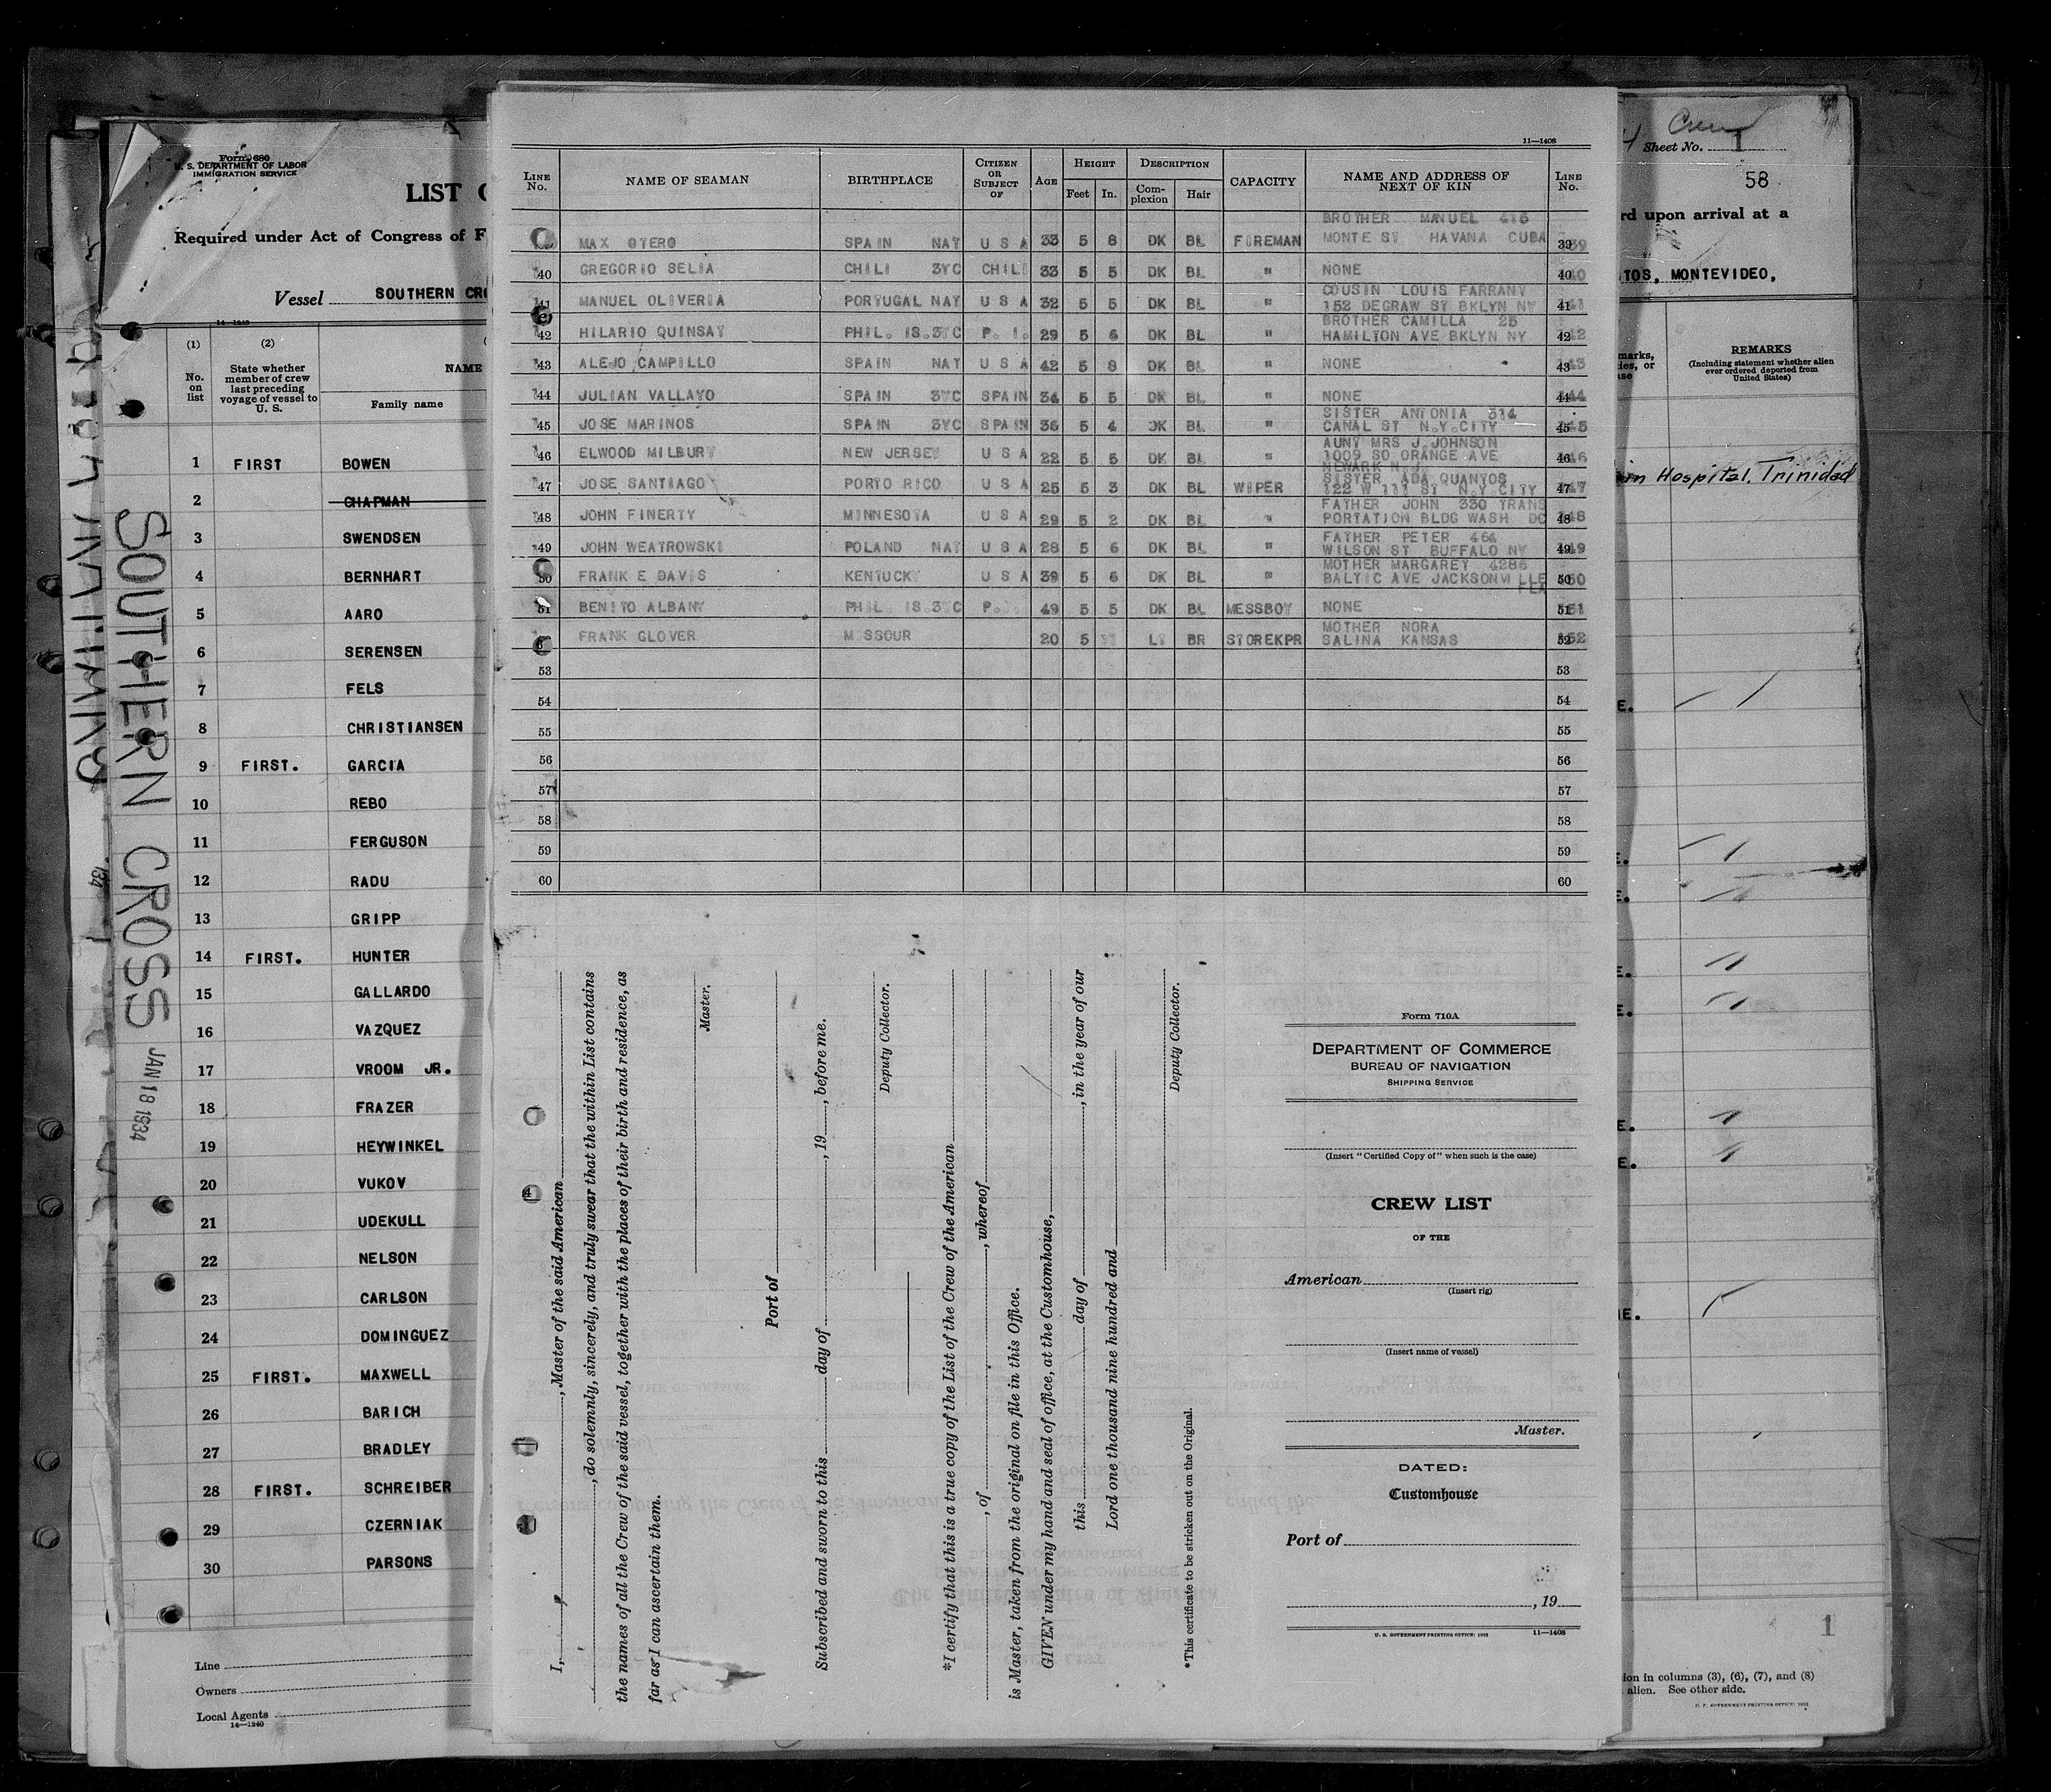 Form 680
U. S. DEPARTMENT OF LABOR
IMMIGRATION SERVICE
LIST
Required under Act of Congress of F
Vessel SOUTHERN CRO
14—1240
(1) (2)
No. on list
State whether member of crew last preceding voyage of vessel to U. S.
NAME
Family name
1 FIRST BOWEN
2 CHAPMAN
3 SWENDSEN
4 BERNHART
5 AARO
6 SERENSEN
7 FELS
8 CHRISTIANSEN
9 FIRST. GARCIA
10 REBO
11 FERGUSON
12 RADU
13 GRIPP
14 FIRST. HUNTER
15 GALLARDO
16 VAZQUEZ
17 VROOM JR.
18 FRAZER
19 HEYWINKEL
20 VUKOV
21 UDEKULL
22 NELSON
23 CARLSON
24 DOMINGUEZ
25 FIRST. MAXWELL
26 BARICH
27 BRADLEY
28 FIRST. SCHREIBER
29 CZERNIAK
30 PARSONS
Line
Owners
Local Agents
14—1240
SOUTHERN CROSS JAN 18 1934
11—1408
LINE No. NAME OF SEAMAN BIRTHPLACE CITIZEN OR SUBJECT OF AGE HEIGHT Feet In. DESCRIPTION Complexion Hair CAPACITY NAME AND ADDRESS OF NEXT OF KIN LINE No.
BROTHER MANUEL 415
MAX OTERO SPAIN NAT U S A 33 5 8 DK BL FIREMAN MONTE ST HAVANA CUBA 39
40 GREGORIO SELIA CHILI 3YC CHILI 33 5 5 DK BL " NONE 40
COUSIN LOUIS FARRANY
41 MANUEL OLIVERIA PORTUGAL NAT U S A 32 5 5 DK BL " 152 DEGRAW ST BKLYN NY 41
BROTHER CAMILLA 25
42 HILARIO QUINSAY PHIL. IS.3YC P. I. 29 5 6 DK BL " HAMILTON AVE BKLYN NY 42
43 ALEJO CAMPILLO SPAIN NAT U S A 42 5 8 DK BL " NONE 43
44 JULIAN VALLAYO SPAIN 3YC SPAIN 34 5 5 DK BL " NONE 44
SISTER ANTONIA 314
45 JOSE MARINOS SPAIN 3YC SPAIN 36 5 4 DK BL " CANAL ST N.Y.CITY 45
AUNT MRS J JOHNSON
46 ELWOOD MILBURY NEW JERSEY U S A 22 5 5 DK BL " 1009 SO ORANGE AVE 46
NEWARK N.J.
SISTER ADA QUANTOS
47 JOSE SANTIAGO PORTO RICO U S A 25 5 3 DK BL WIPER 122 W 111 ST N.Y CITY 47
FATHER JOHN 330 TRANS
48 JOHN FINERTY MINNESOTA U S A 29 5 2 DK BL " PORTATION BLDG WASH DC 48
FATHER PETER 464
49 JOHN WEATROWSKI POLAND NAT U S A 28 5 6 DK BL " WILSON ST BUFFALO NY 49
MOTHER MARGARET 4286
50 FRANK E DAVIS KENTUCKY U S A 39 5 6 DK BL " BALTIC AVE JACKSONVILLE 50
FLA
51 BENITO ALBANY PHIL. IS.3YC P. 49 5 5 DK BL MESSBOY NONE 51
MOTHER NORA
FRANK GLOVER M SSOUR 20 5 11 LT BR STOREKPR SALINA KANSAS 52
53 53
54 54
55 55
56 56
57 57
58 58
59 59
60 60
I, , Master of the said American
, do solemnly, sincerely, and truly swear that the within List contains
the names of all the Crew of the said vessel, together with the places of their birth and residence, as
far as I can ascertain them.
Master.
Port of
Subscribed and sworn to this day of , 19 , before me.
Deputy Collector.
*I certify that this is a true copy of the List of the Crew of the American
, of , whereof
is Master, taken from the original on file in this Office.
GIVEN under my hand and seal of office, at the Customhouse,
this day of , in the year of our
Lord one thousand nine hundred and
Deputy Collector.
*This certificate to be stricken out on the Original.
Form 710A
DEPARTMENT OF COMMERCE
BUREAU OF NAVIGATION
SHIPPING SERVICE
(Insert "Certified Copy of" when such is the case)
CREW LIST
OF THE
American
(Insert rig)
(Insert name of vessel)
Master.
DATED:
Customhouse
Port of
, 19
U. S. GOVERNMENT PRINTING OFFICE: 1932 11—1408
Crew
Sheet No. 1
58
rd upon arrival at a
TOS, MONTEVIDEO,
marks,
REMARKS
(Including statement whether alien ever ordered deported from United States)
in Hospital, Trinidad
1
ion in columns (3), (6), (7), and (8)
alien. See other side.
U. S. GOVERNMENT PRINTING OFFICE: 1932